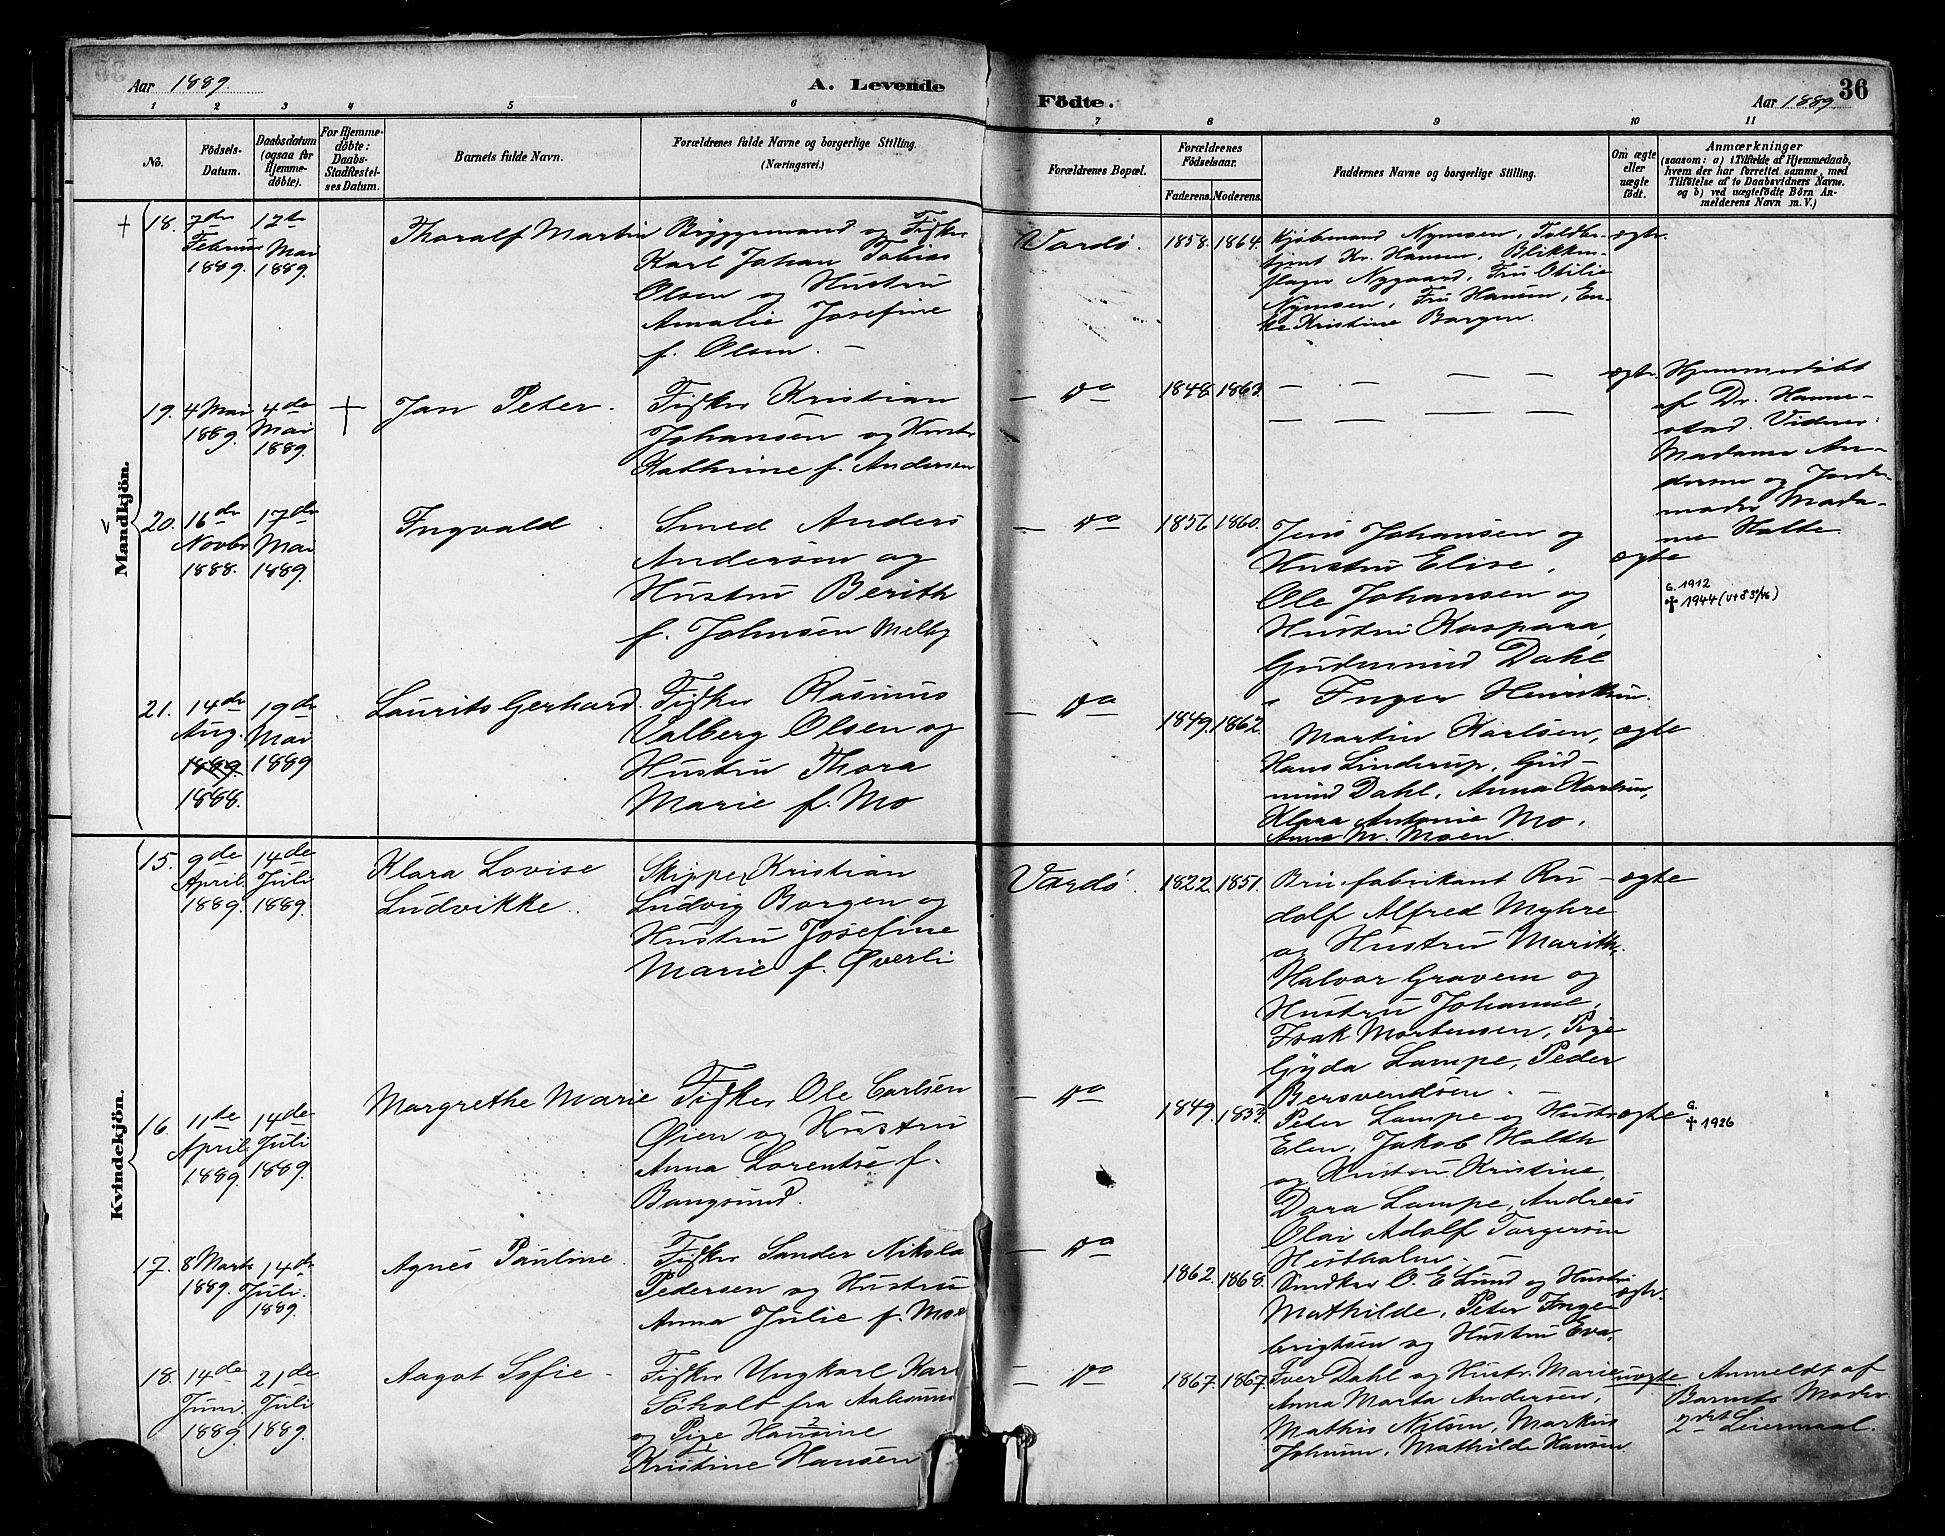 Aar 1889.
A. Levende
Födte.
Aar 1889
36
1 2 3 4 5 6 7 8 9 10 11
No.
Födsels-
Datum.
Daabsdatum
(ogsaa for
Hjemme-
døbte).
For Hjemme-
døbte:
Daabs-
Stadfæstel-
ses Datum.
Barnets fulde Navn.
Forældrenes fulde Navne og borgerlige Stilling.
(Næringsvei.)
Forældrenes Bopæl.
Forældrenes
Födselsaar.
Faderens.
Moderens.
Faddernes Navne og borgerlige Stilling.
Om ægte
eller
uægte
födt.
Anmærkninger
(saasom: a) i Tilfælde af Hjemmedaab,
hvem der har forrettet samme, med
Tilföielse af to Daabsvidners Navne.
og b) ved uægtefödte Börn An-
melderens Navn m. V.)
Mandkjön.
18.
7de
Februar
1889.
12te
Mai
1889.
Thoralf Martin
Bryggemand og Fisker
Karl Johan Tobias
Olsen og Hustru
Amalie Josefine
f. Olsen. —
Vardö.
1858. 1864.
Kjöbmand Nymoen, Toldbe-
tjent Kr. Hansen, Blikken-
slager Nygaard, Fru Otilie
Nymoen, Fru Hansen, En-
ke Kristine Borgen.
ægte.
19.
4 Mai
1889.
4de
Mai
1889.
Jan Peter.
Fisker Kristian
Johansen og Hustr.
Kathrine f. Andersen
— Do
1848. 1863.
— — — —
— — — —
ægte.
Hjemmedöbt
af Dr. Hanne-
stad. Vidner:
Madame An-
dersen og Jorde-
moder Mada-
me Holte.
20.
16de
Novbr
1888.
17de
Mai
1889.
Ingvald.
Smed Anders
Andersen og
Hustru Berith
f. Johnsen Melby
— Do
1856 1860.
Jens Johansen og
Hustru Elise,
Ole Johansen og
Hustru Kaspara,
Gudmund Dahl
Inger Henriksen.
ægte
G. 1912
✝ 1944
21.
14de
Aug.
1889.
1888.
19de
Mai
1889
Laurits Gerhard.
Fisker Rasmus
Valberg Olsen og
Hustru Thora
Marie f. Mo
— Do
1849. 1862.
Martin Karlsen,
Hans Linderup, Gud-
mund Dahl, Anna Karlsen,
Klara Antonie Mo,
Anna M. Moen.
ægte
Kvindekjön.
15.
9de
April.
1889.
14de
Juli
1889.
Klara Lovise
Ludvikke.
Skipper Kristian
Ludvig Borgen og
Hustru Josefine
Marie f. Øverli
Vardö.
1822. 1851.
Brusfabrikant Ru-
dolf Alfred Myhre
og Hustru Marith,
Halvor Gravem og
Hustru Johanne,
Isak Mortensen, Pige
Gyda Lampe, Peder
Bersvendsen. —
ægte
16.
11te
April
1889.
14de
Juli
1889.
Margrethe Marie
Fisker Ole Carlsen
Øien og Hustru
Anna Lorentse f.
Bangsund.
— Do
1849. 1853.
Peter Lampe og Hustr.
Elen, Jakob Holth
og Hustru Kristine,
Dora Lampe, Andreas
Olai Adolf Torgersen
Hestholm. —
ægte
G.
✝ 1926
17.
8 Marts
1889.
14de
Juli.
1889.
Agnes Pauline.
Fisker Sander Nikolai
Pedersen og Hustru
Anna Julie f. Moe
— Do
1862. 1868.
Snedker O. E Lund og Hustru
Mathilde, Peter Inge-
brigtsen og Hustru Eva.
ægte.
18.
14de
Juni
1889.
21de
Juli
1889.
Aagot Sofie —
Fisker Ungkarl Karl
Söholt fra Aalesund
og Pige Hansine 2
Kristine Hansen
— Do
1867. 1867.
Iver Dahl og Hustr. Marie
Anna Marta Andersen,
Mathis Nilsen, Markus
Johnsen, Mathilde Hansen
uægte
Anmeldt af
Barnets Moder.
2det Leiermaal.